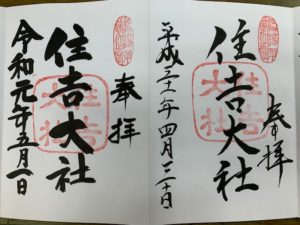 奉拝
住吉大社
住吉大社
平成三十一年四月三十日
奉拝
住吉大社
住吉大社
令和元年五月一日